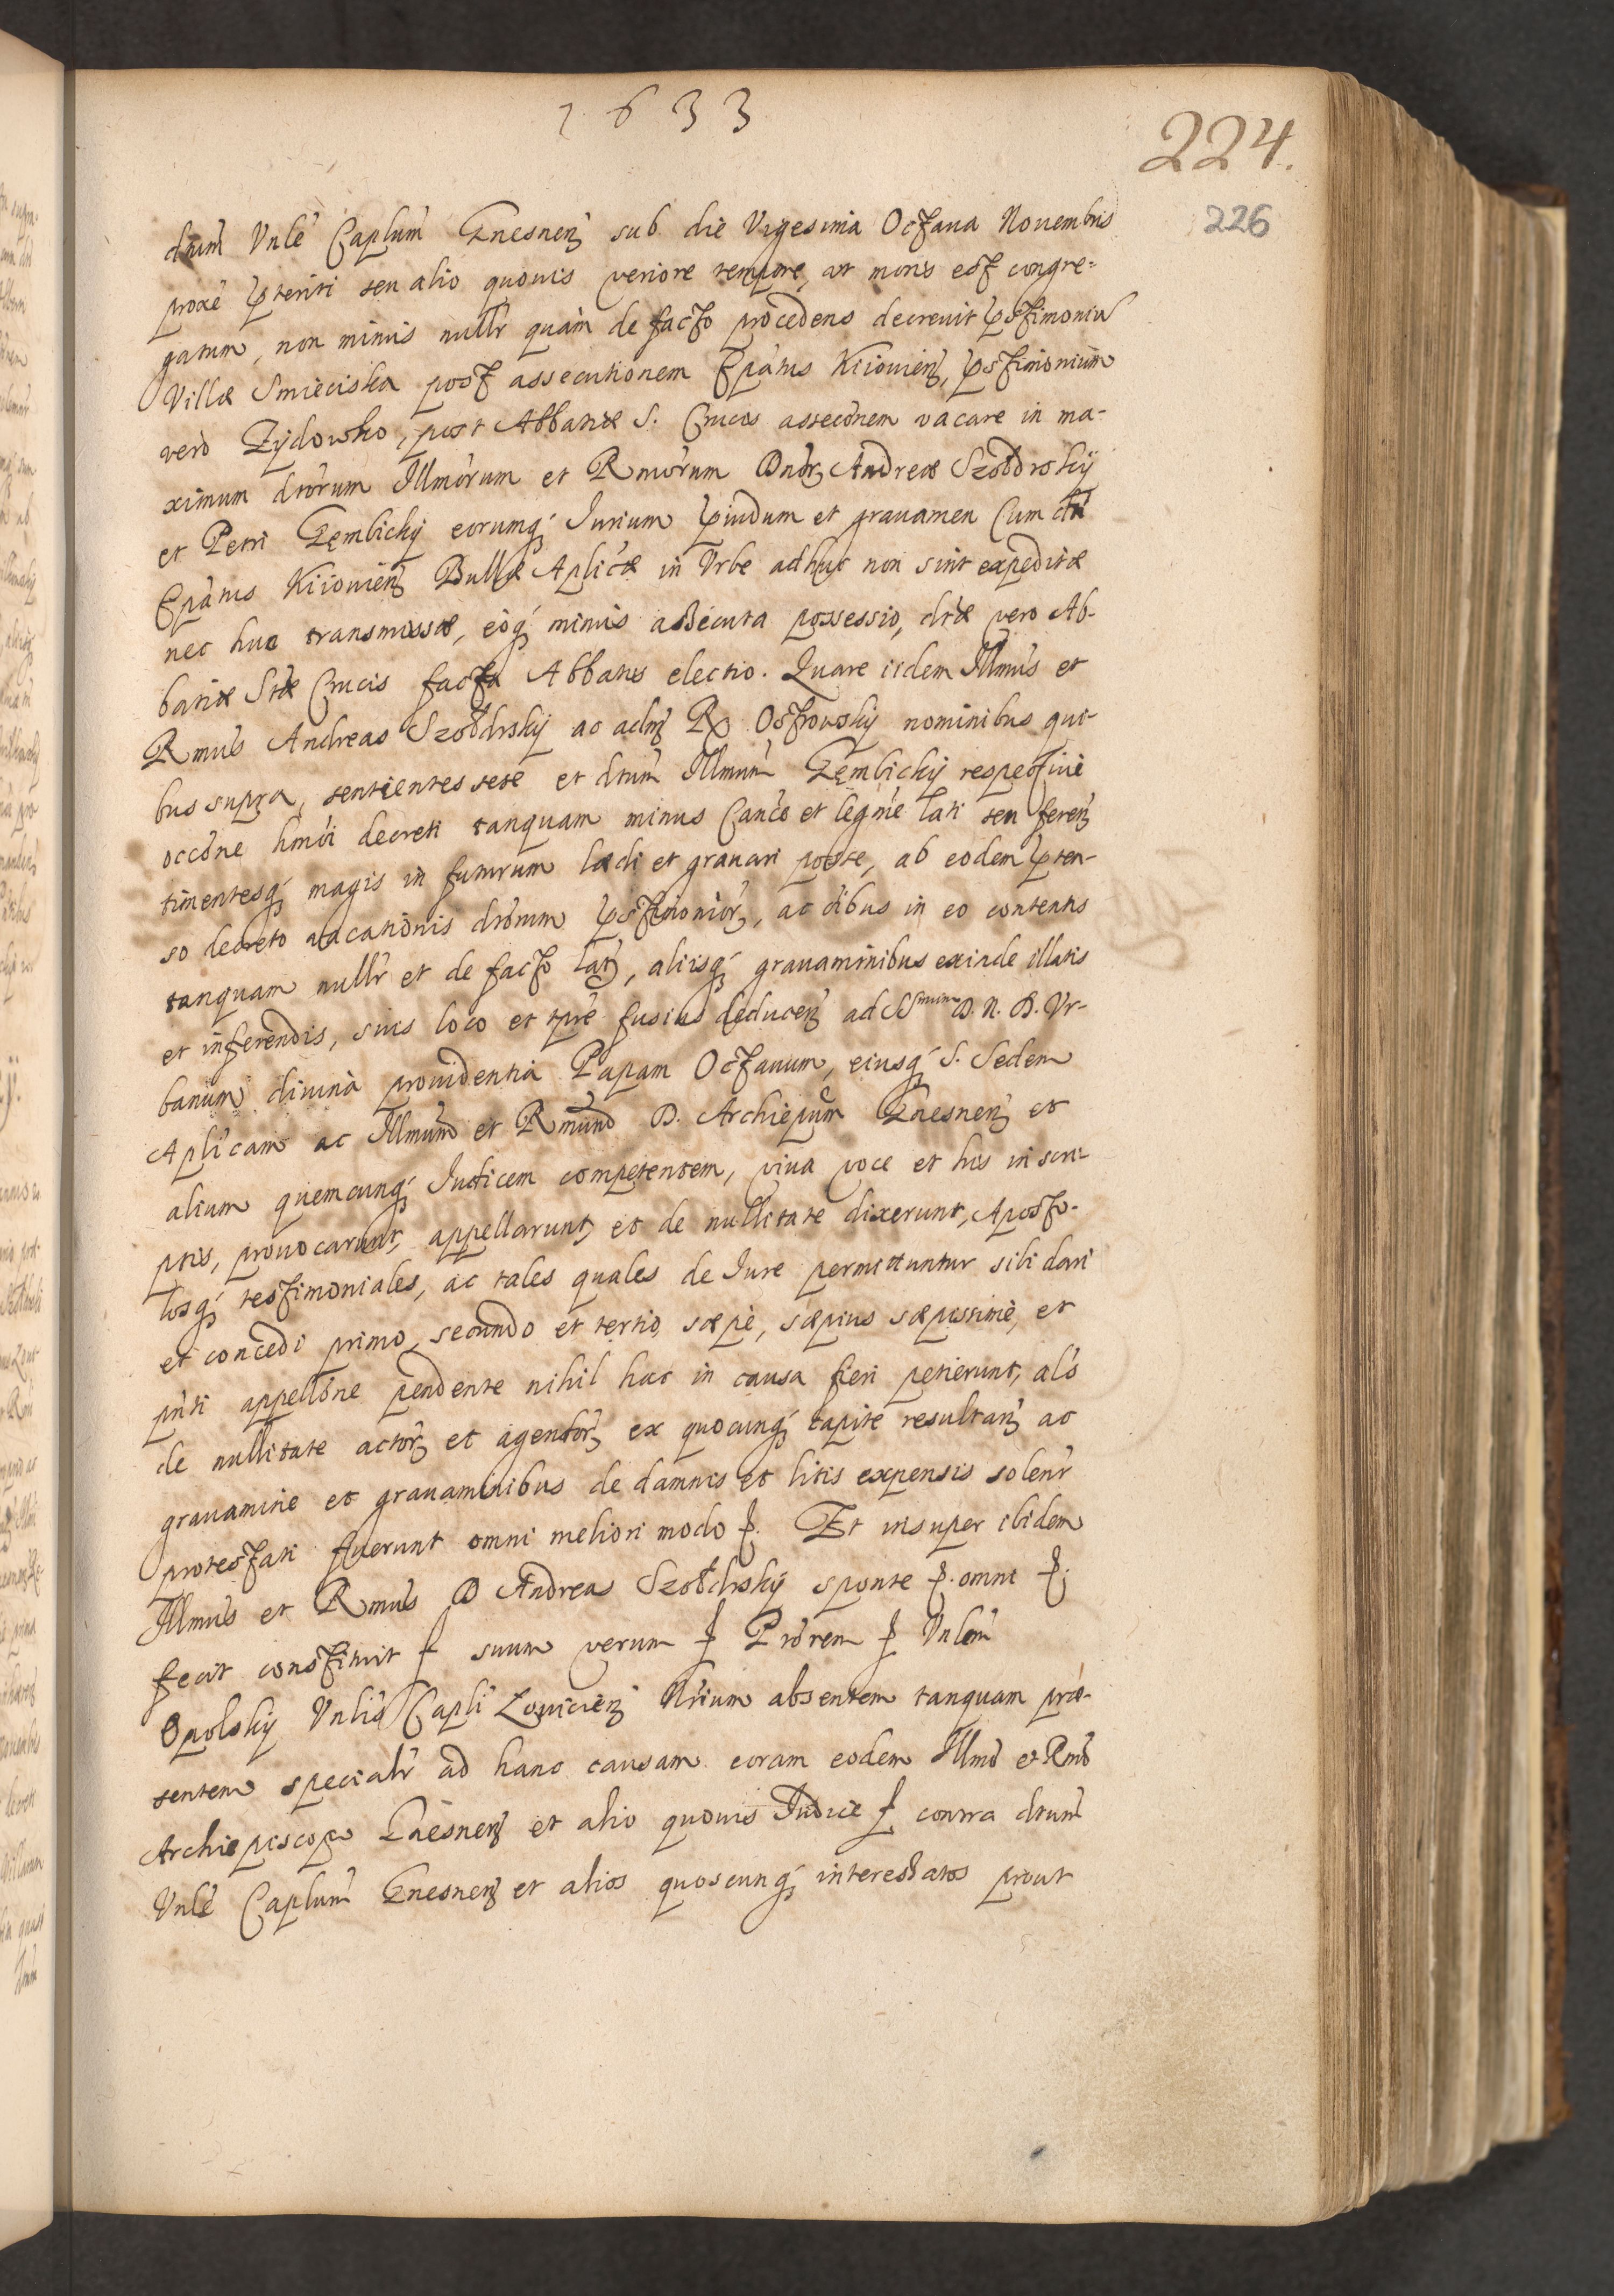 1633
224.
226
dtum Vnle Caplum Gnesnen sub die Vigesima Octaua Nouembris
proxe pteriti seu alio quouis veriore tempore, ut moris est congre=
gatum, non minus nullr quam de facto procedens decreuit pstimoniu
Villæ Smieciska post assecutionem Epatus Kiiouien, pstimonium
vero Zydowko, post Abbatiæ S. Crucis asseconem vacare in ma-
ximum dtorum Illmorum et Rmorum Dnor Andreæ Szołdrsky
et Petri Gembicky eorumq Iurium piudum et grauamen Cum dti
Epatus Kiiouien Bullæ Aplicæ in Vrbe adhuc non sint expeditæ
nec huc transmissæ, eoq minus assecuta possessio, dtæ vero Ab-
batiæ Stæ Crucis facta Abbatis electio. Quare iidem Illmus et
Rmus Andreas Szołdrsky ac adm R Ostrowsky nominibus qui-
bus supra, sentientes sese et dtum Illmum Gembicky respectiue
occone hmoi decreti tanquam minus Cance et legme lati seu feren
timentesq magis in futurum lædi et grauari posse, ab eodem pten-
so decreto vacationis dtorum pstimonior, ac oibus in eo contentis
tanquam nullr et de facto lat, aliisq grauaminibus exinde illatis
et inferendis, suis loco et tpre fusius deducen ad SSmum D. N. D. Vr-
banum diuina prouidentia Papam Octauum, eiusq S. Sedem
Aplicam ac Illmum et Rmum D. Archiepum Gnesnen et
alium quemcunq Iudicem competentem, viua voce et his in scri-
ptis, prouocarunt, appellarunt, et de nullitate dixerunt, Aposto-
losq testimoniales, ac tales quales de Iure permittuntur sibi dari
et concedi primo, secundo et tertio, sæpe, sæpius sæpissime, et
pnti appellone pendente nihil hac in causa fieri petierunt, als
de nullitate actor et agendor ex quocunq capite resultan ac
grauamine et grauaminibus de damnis et litis expensis solenr
protestati fuerunt omni meliori modo. Et insuper ibidem
Illmus et Rmus D Andreas Szołdrsky sponte omni
fecit constituit suum verum Prorem Vnlem
Opolsky Vnlis Capli Louicien Nrium absentem tanquam præ-
sentem specialr ad hanc causam coram eodem Illmo et Rmo
Archiepiscopo Gnesnen et alio quouis Iudice contra dtum
Vnle Caplum Gnesnen et alios quoscunq interessatos prout